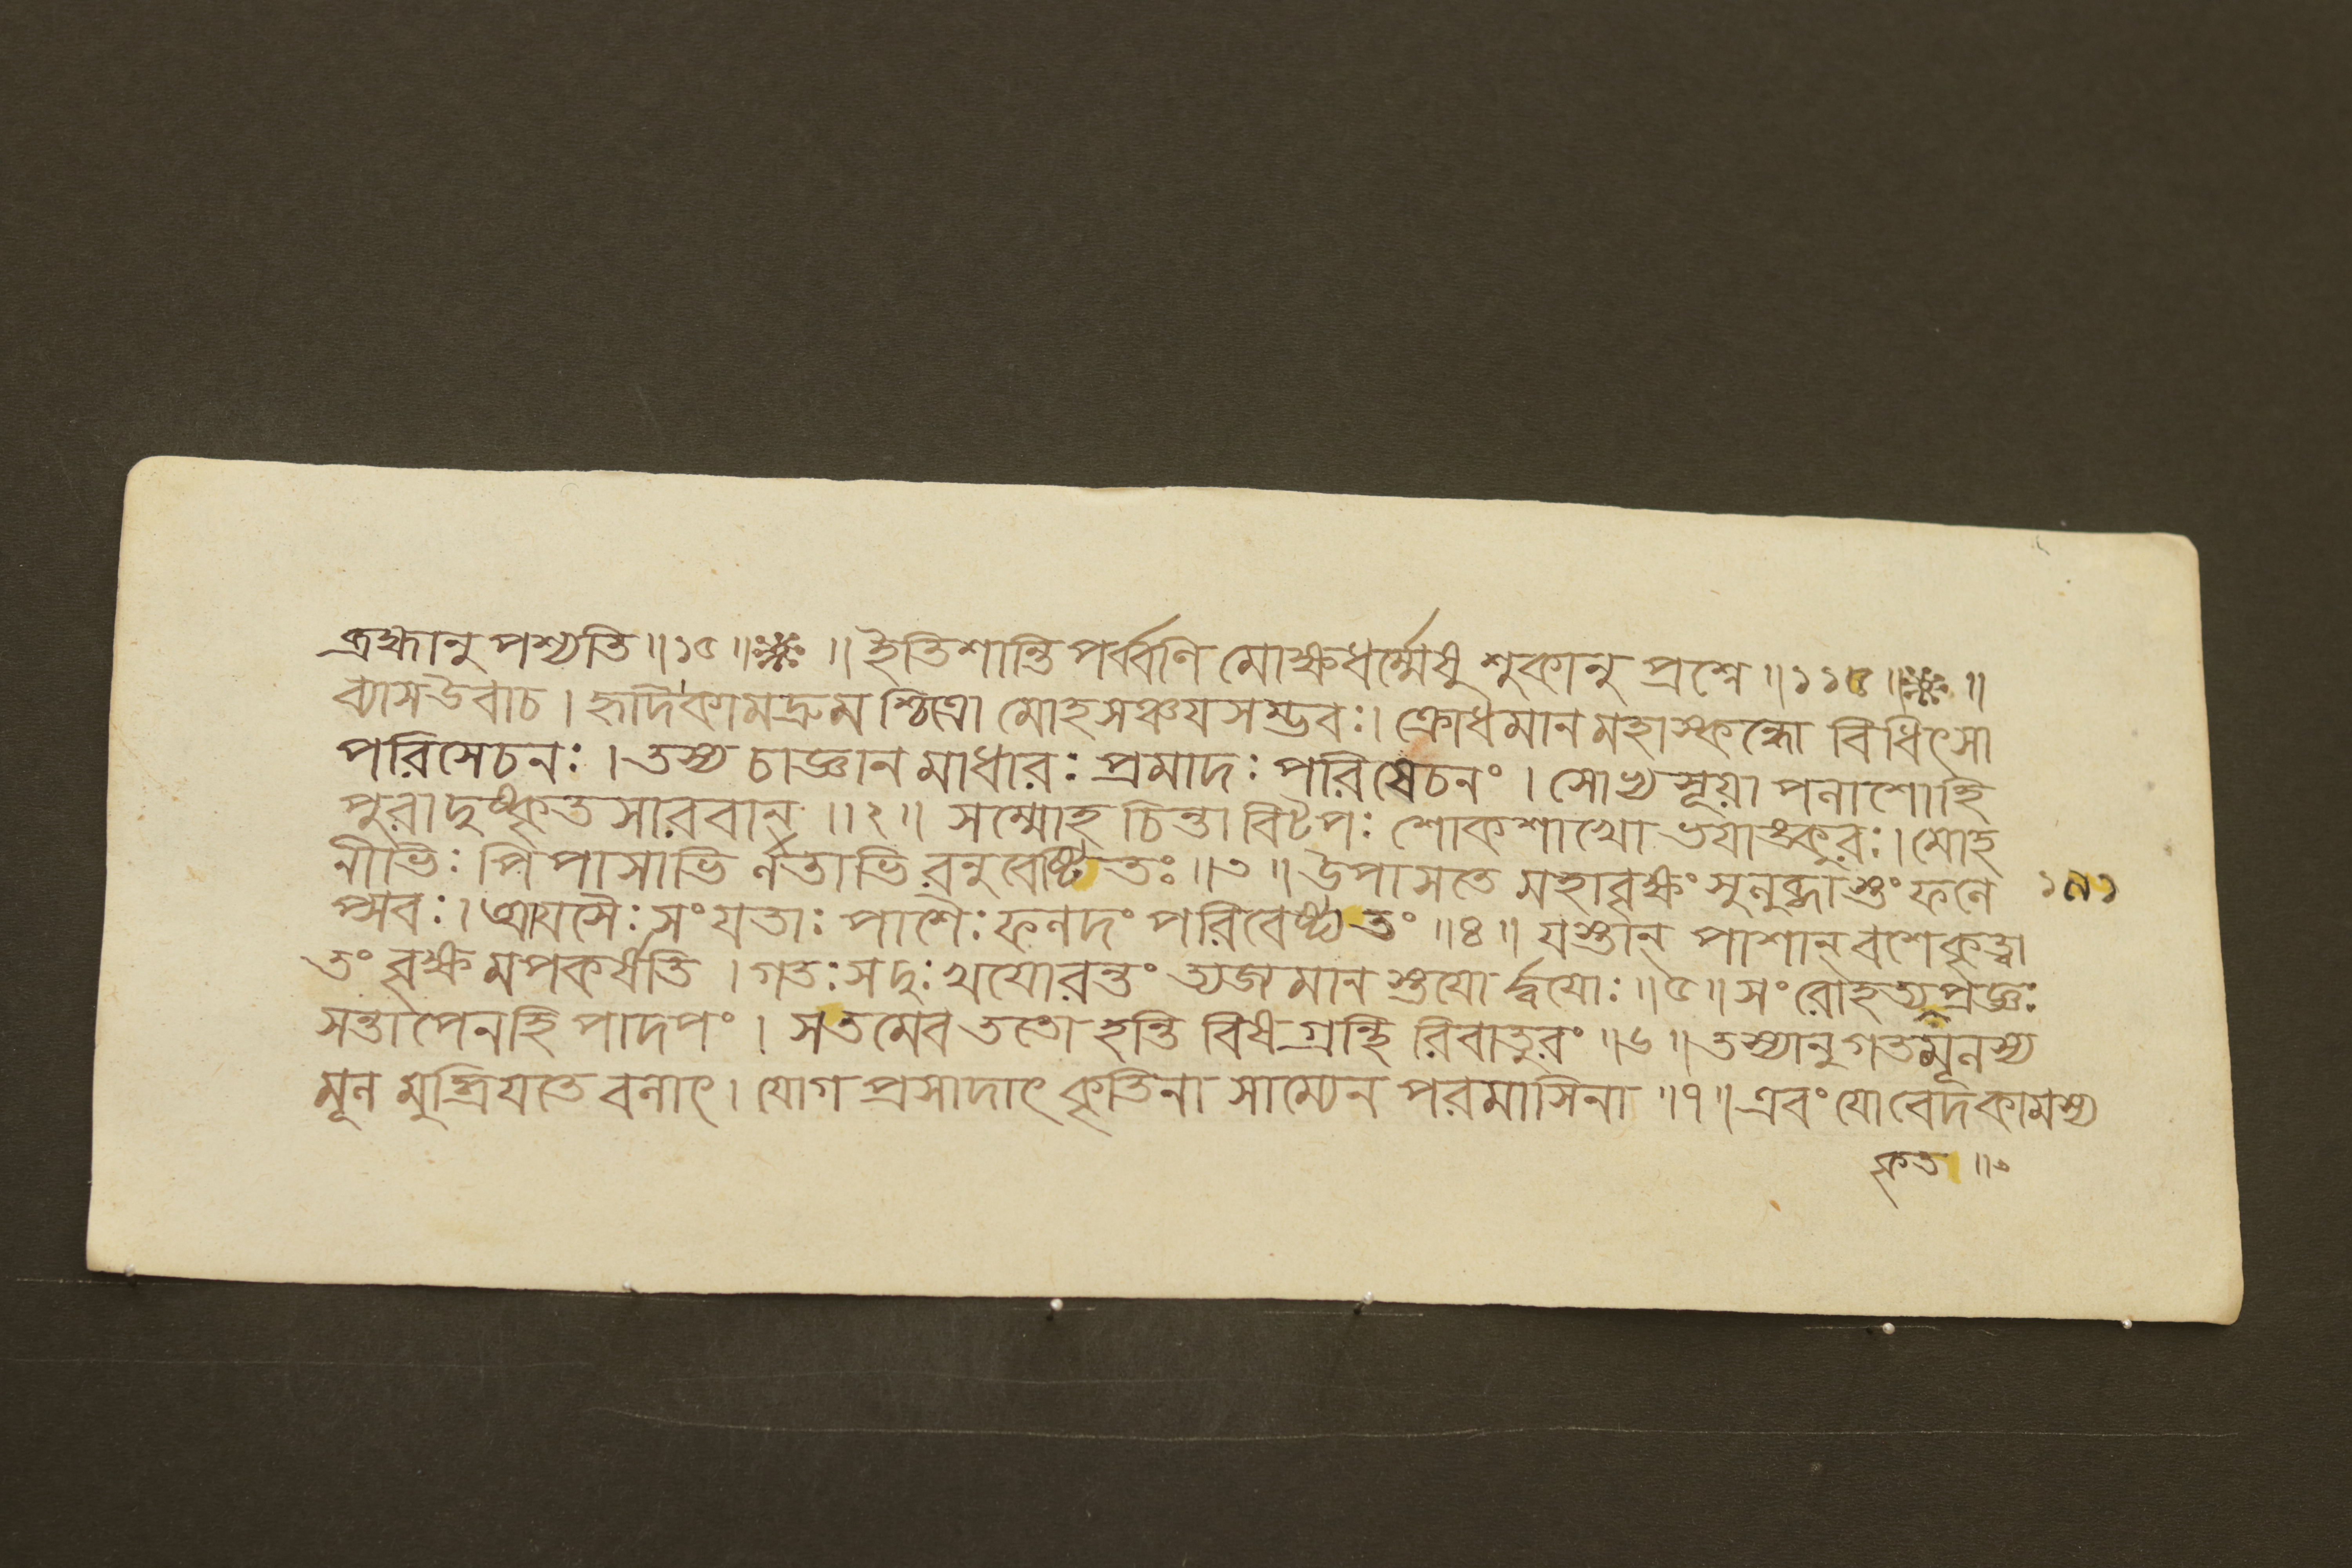 ব্রহ্মানুপশ্যতি॥১৫॥❈॥ইতিশান্তিপর্ব্বণিমোক্ষধর্ম্মেষুশুকানুপ্রশ্নে॥১১৫॥❈॥
ব্যাসউবাচ।হৃদিকামদ্রুমশ্চিত্রোমোহসঞ্চযসম্ভবঃ।ক্রোধমানমহাস্কন্ধোবিধিৎসা
পরিসেচনঃ।তস্যচাজ্ঞানমাধারঃপ্রমাদঃপরিষেচনং।সোভ্যসূয়াপলাশোহি
পুরাদুষ্কৃতসারবান্॥২॥সম্মোহচিন্তাবিটপঃশোকশাখোভযাঙ্কুরঃ।মোহ
নীভিঃপিপাসাভির্লতাভিরনুবেষ্টিতঃ॥৩॥উপাসতেমহাবৃক্ষংসুলুব্ধাস্তংফলে ১৯১
প্সবঃ।আযসৈঃসংযতাঃপাশৈঃফলদংপরিবেষ্ট্যতং॥৪॥যস্তান্পাশান্বশেকৃত্বা
তংবৃক্ষমপকর্ষতি।গতঃসদুঃখযোরন্তংত্যজমানস্তযোর্দ্বযোঃ॥৫॥সংরোহত্যপ্রজ্ঞঃ
সন্তাপেনহিপাদপং।সতমেবততোহন্তিবিষগ্রন্থিরিবাতুরং॥৬॥তস্যানুগতমূলস্য
মূলমুদ্ধ্রিযতেবলাৎ।যোগপ্রসাদাৎকৃতিনাসাম্যেনপরমাসিনা॥৭॥এবংযোবেদকামস্য
কৃত॥৹